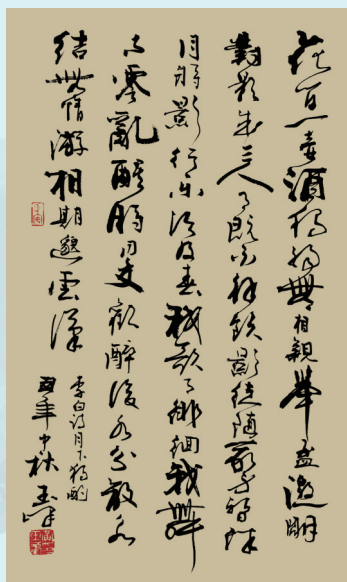 花间一壶酒独酌無相親舉盃邀明
對影成三人月既不解飲影徒随我身暫伴
月将影行乐须及春我歌月徘徊我舞
影零亂醒時同交歡醉後各分散永
结無情游相期邈雲漢
李白诗月下独酌
酉年中秋玉峰